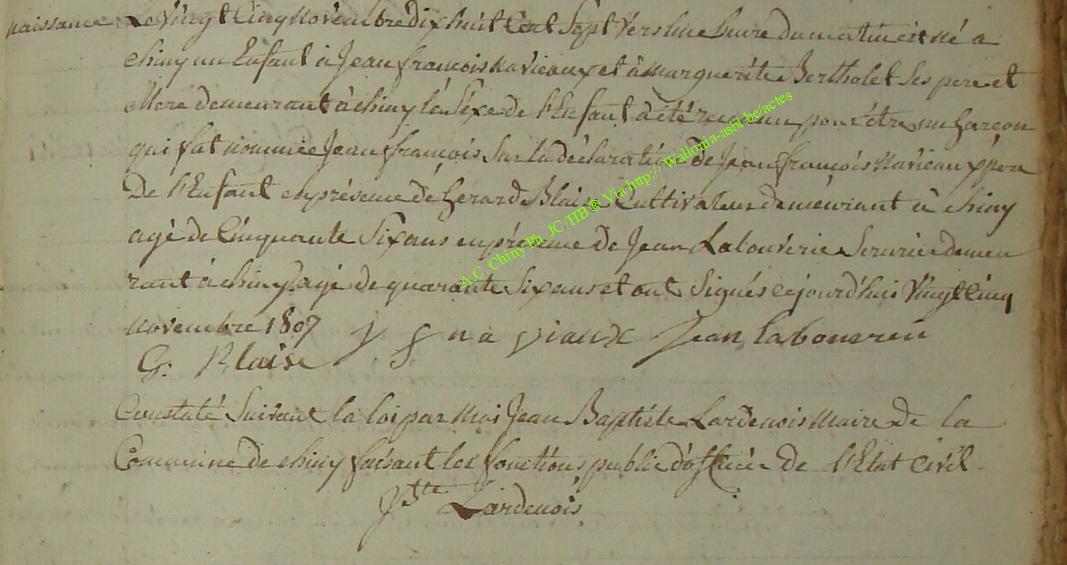 naissance Le Vingt Cinq Novembre dix huit Cent Sept vers une heure du matin est né a
chiny un Enfant à Jean francois Navieaux et à marguerite Bertholet Ses pere et
Mere demeurant à chiny le Sexe de l'Enfant à été reconnu pour être un Garcon
qui fut nommée Jean francois Sur la déclaration de Jean francois Navieaux père
De l'Enfant en présence de Gerard Blaise Cultivateur demeurant à chiny
agé de Cinquante Six ans en présence de Jean Labouverie demeu
rant à chiny agé de quarante Six ans et ont Signés cejourd'hui Vingt Cinq
Novembre 1807 Jean labouvrei
G. Blaise
Constaté Suivant la loi par Moi Jean Baptiste Lardenois Maire de la
Commune de chiny faisant les fonctions public d'officier de l'Etat Civil
Lardenois
A.C. Chiny Ph. JC/HB® Via http://Wallonia-asbl.be/actes